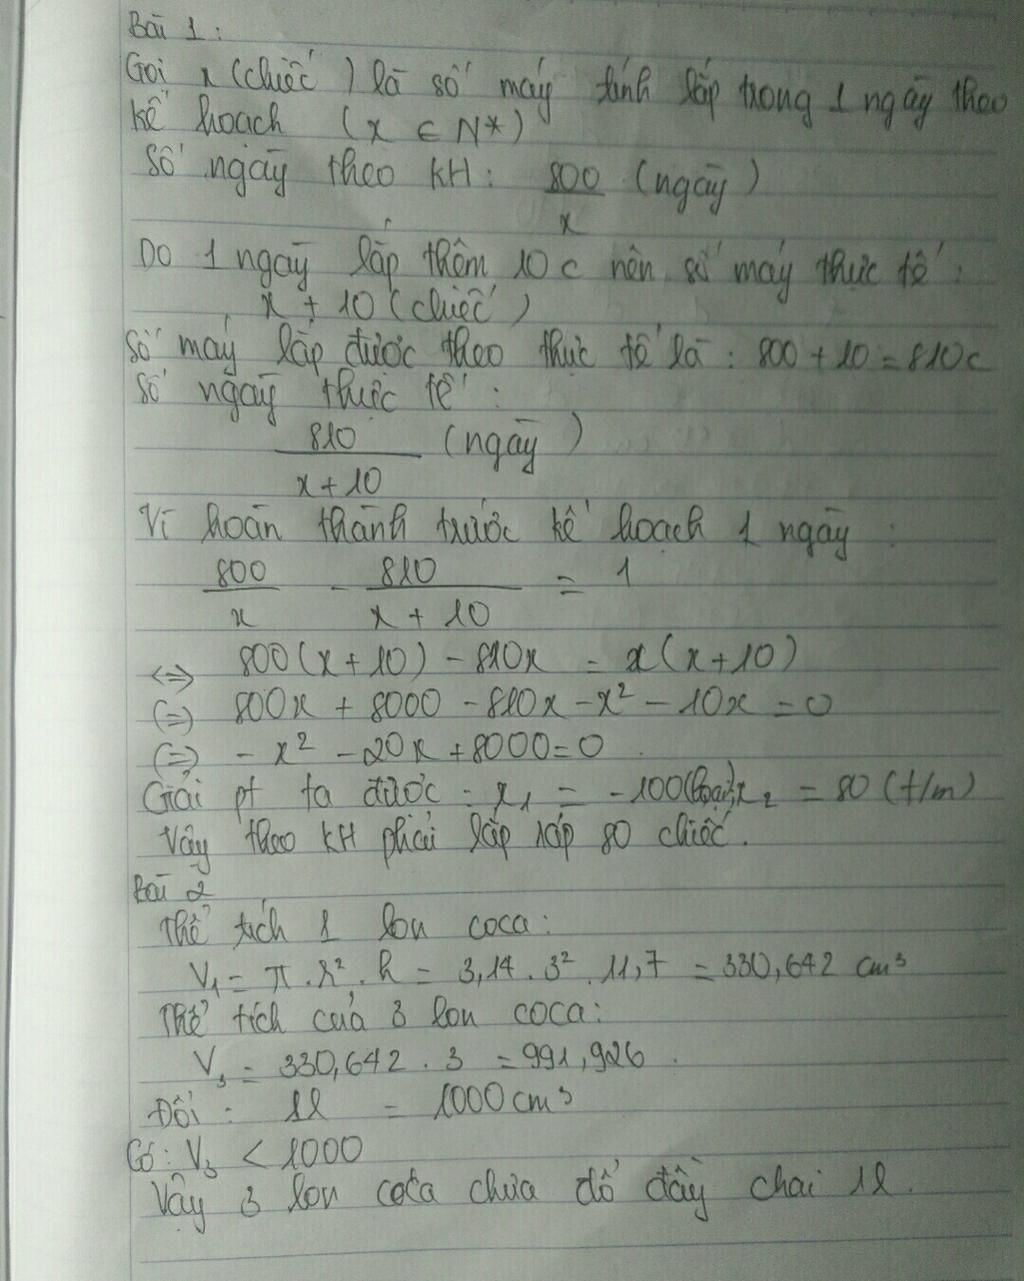 Bài 1:
Gọi x (chiếc) là số máy tính lắp trong 1 ngày theo
kế hoạch (x ∈ N*)
Số ngày theo KH: 800/x (ngày)
Do 1 ngày lắp thêm 10 c nên số máy thực tế:
x + 10 (chiếc)
Số máy lắp được theo thực tế là: 800 + 10 = 810c
Số ngày thực tế:
810/(x+10) (ngày)
Vì hoàn thành trước kế hoạch 1 ngày:
800/x - 810/(x+10) = 1
<=> 800(x+10) - 810x = x(x+10)
(=) 800x + 8000 - 810x - x² - 10x = 0
(=) - x² - 20x + 8000 = 0
Giải pt ta được: x₁ = -100 (loại), x₂ = 80 (t/m)
Vậy theo KH phải lắp ráp 80 chiếc.
Bài 2
Thể tích 1 lon coca:
V₁ = π.r².h = 3,14.3².11,7 = 330,642 cm³
Thể tích của 3 lon coca:
V₃ = 330,642 . 3 = 991,926.
Đổi: 1l = 1000 cm³
Có: V₃ < 1000
Vậy 3 lon coca chưa đổ đầy chai 1l.